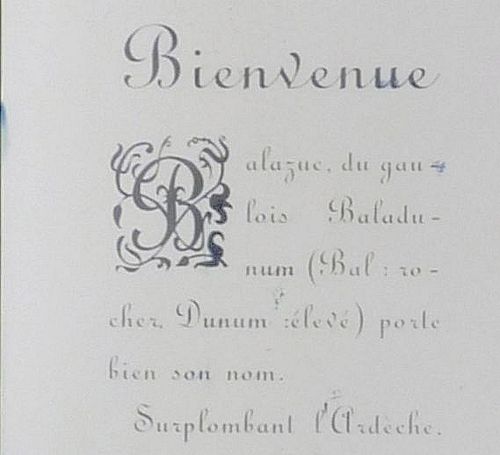 Bienvenue
Balazuc, du gau-
lois Baladu-
num (Bal : ro-
cher, Dunum : élevé) porte
bien son nom.
Surplombant l'Ardèche.